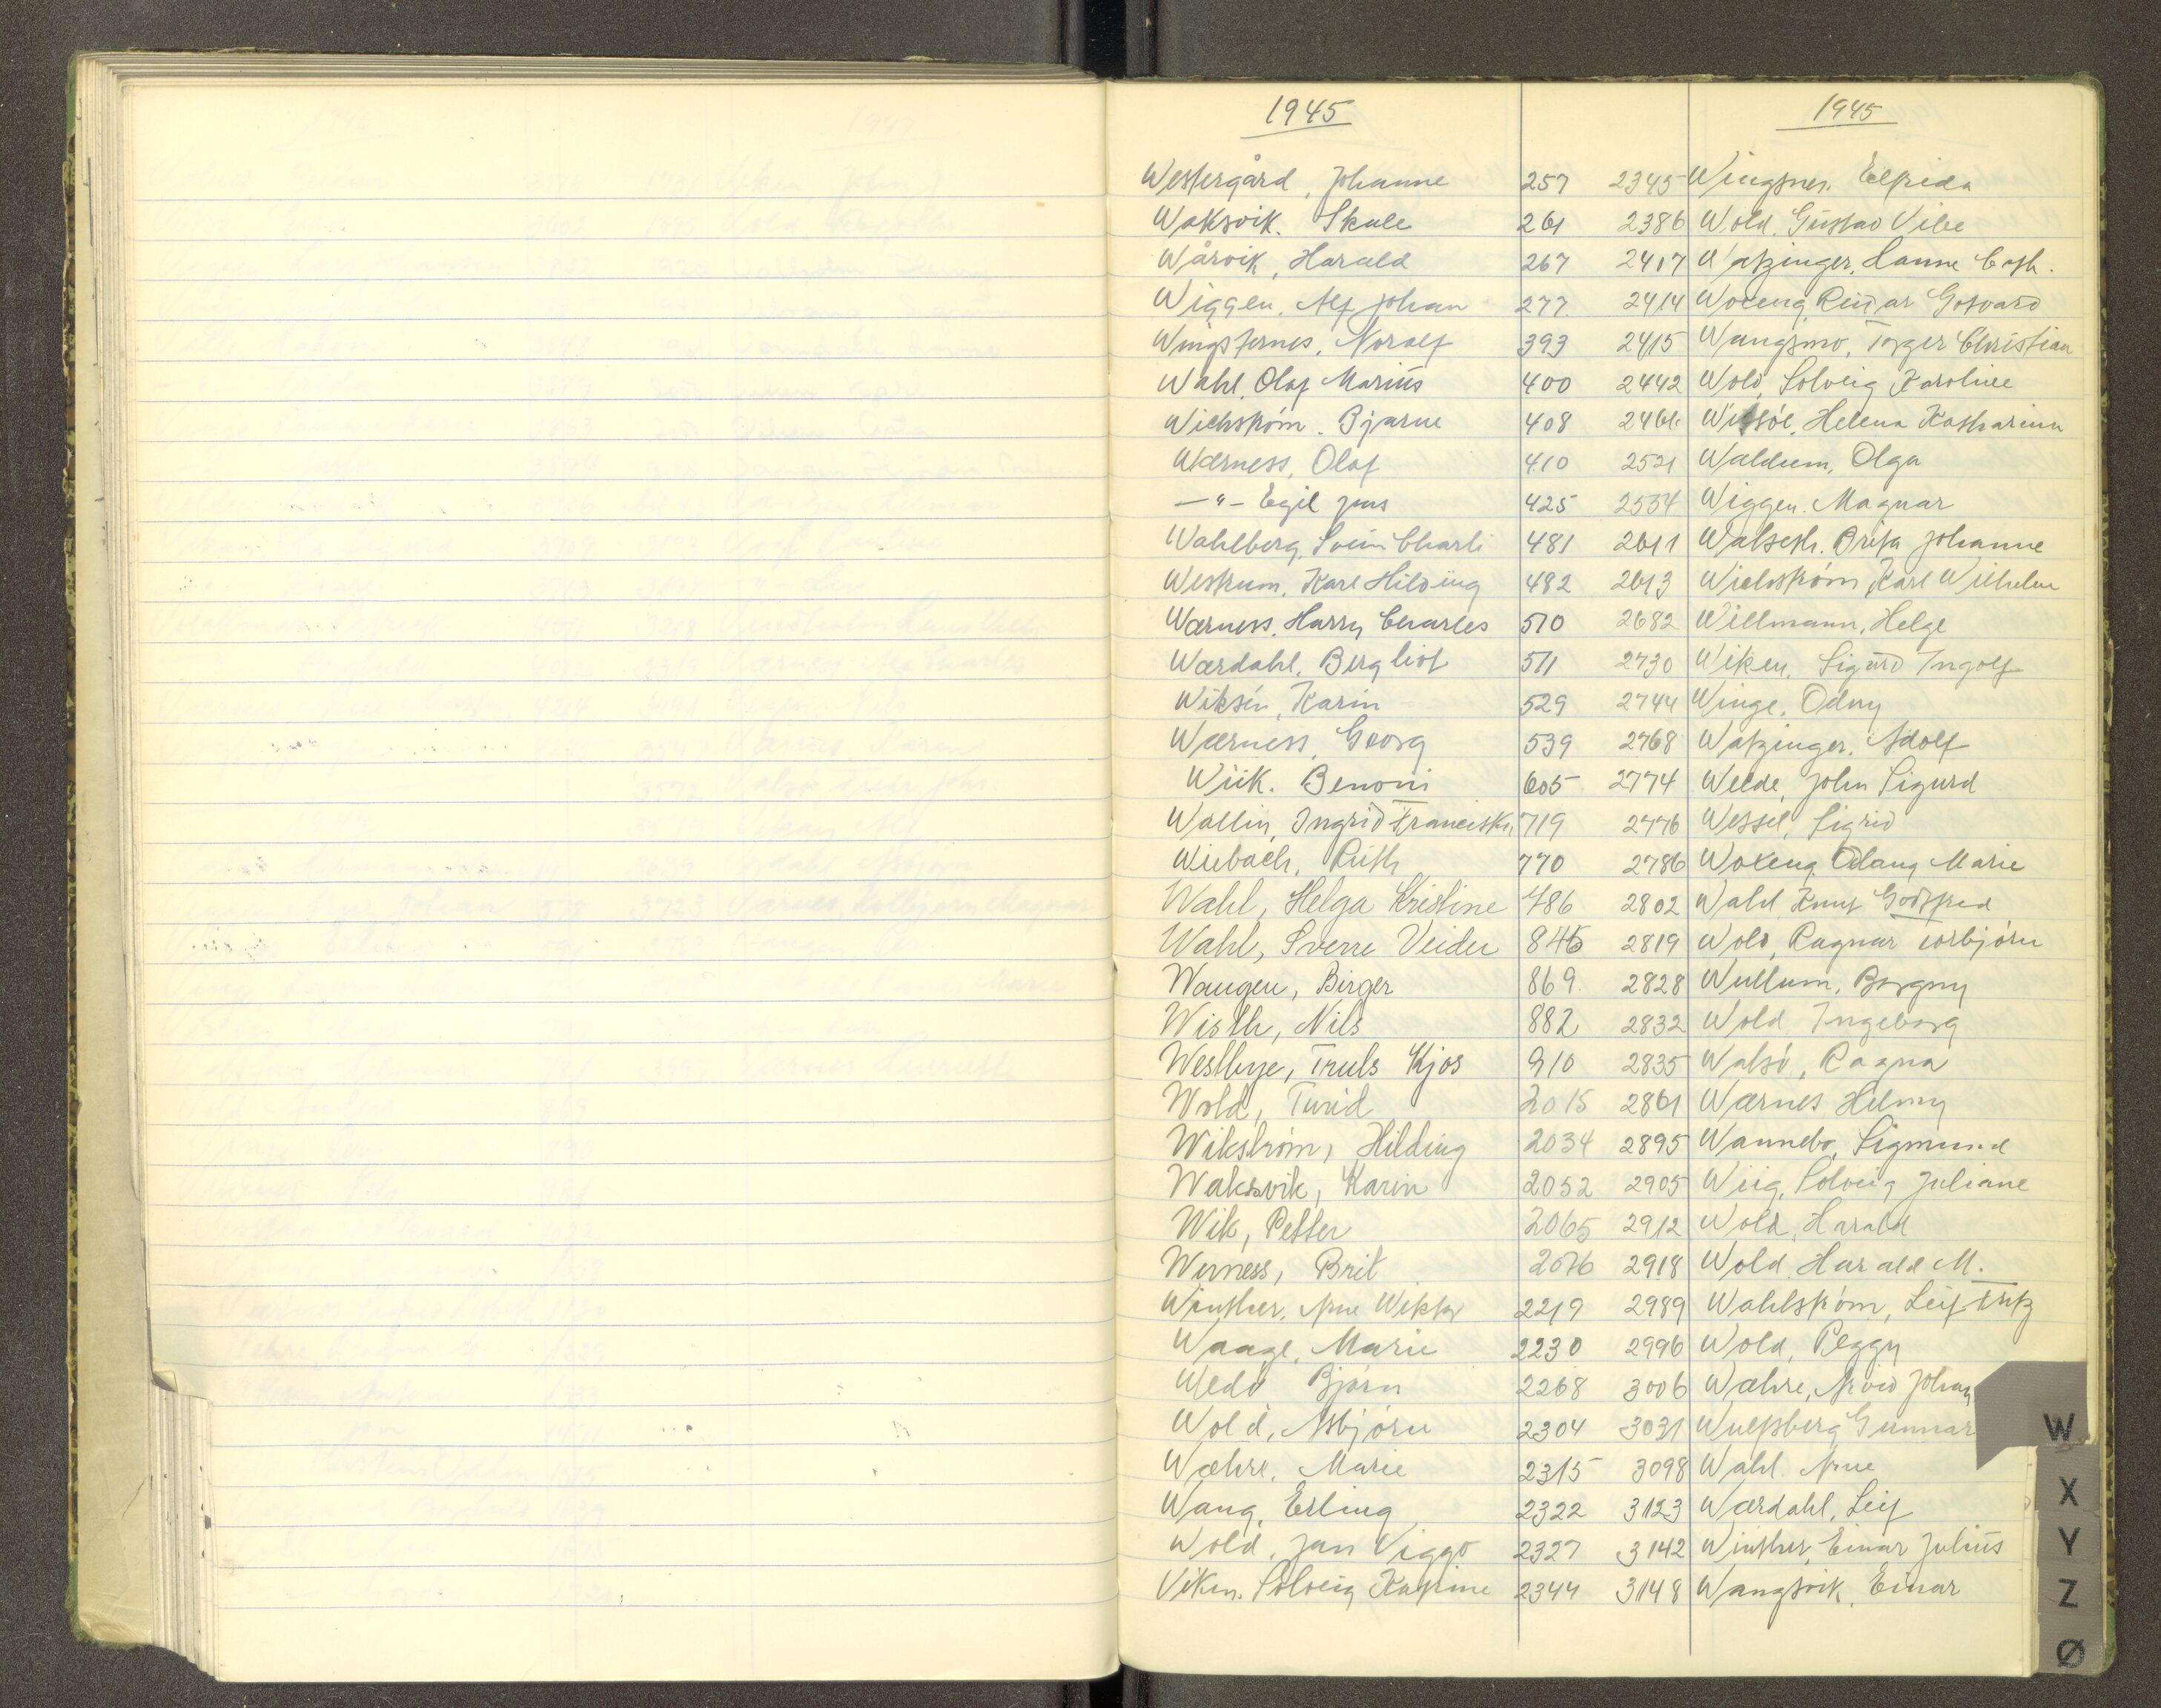 1945
Westergård, Johanne 257
Waksvik. Skule 261
Wårvik, Harald 267
Wiggen, Alf Johan 277
Wingsternes, Noralf 393
Wahl, Olaf Marius 400
Wichstrøm. Bjarne 408
Wærness, Olaf 410
—"— Egil Jens 425
Wahlberg, Svein Charli 481
Westrum, Karl Hilding 482
Wærness, Harry Charles 510
Wærdahl, Bergliot 511
Wiksén, Karin 529
Wærness, Georg 539
Wiik. Benoni 605
Wallin, Ingrid Franciska 719
Wiebach, Ruth 770
Wahl, Helga Kristine 786
Wahl, Sverre Veider 845
Waugen, Birger 869
Wisth, Nils 882
Westbye, Truls Kjos 910
Wold, Turid 2015
Wikstrøm, Hilding 2034
Waksvik, Karin 2052
Wik, Petter 2065
Werness, Brit 2076
Winther, Arne Wiktor 2219
Waage, Marie 2230
Wedø Bjørn 2268
Wold, Asbjørn 2304
Wæhre, Marie 2315
Wang, Erling 2322
Wold, Jan Viggo 2327
Viken. Solveig Katrine 2344
1945
2345 Wingsnes. Elfrida
2386 Wold. Gustav Vibe
2407 Watzinger, Hanne Cath.
2414 Woxeng Reidar Gotvard
2415 Wangsmo, Torger Christian
2442 Wold, Solveig Karoline
2461 Helena Katharina
2521 Waldum, Olga
2534 Wiggen. Magnar
2611 Walseth. Brita Johanne
2613 Wichstrøm, Karl Wilhelm
2682 Willmann, Helge
2730 Wiken, Sigurd Ingolf
2744 Winge, Odny
2768 Watzinger. Adolf
2774 Welde, John Sigurd
2776 Wessel, Sigrid
2786 Woxeng Odlaug Marie
2802 Wahl Knut Godtfred
2819 Wold, Ragnar Torbjørn
2828 Wullum, Borgny
2832 Wold Ingeborg
2835 Walsø, Ragna
2861 Wærnes Helmy
2895 Wannebo, Sigmund
2905 Wiig, Solveig Juliane
2912 Wold, Harald
2918 Wold Harald M.
2989 Wahlstrøm, Leif Fritz
2996 Wold, Peggy
3006 Wæhre, Arvid Johan
3031 Wulfsberg Gunnar
3098 Wahl. Arne
3123 Wærdahl, Leif
3142 Winther, Einar Julius
3148 Wangsvik, Einar
W
X
Y
Z
Ø